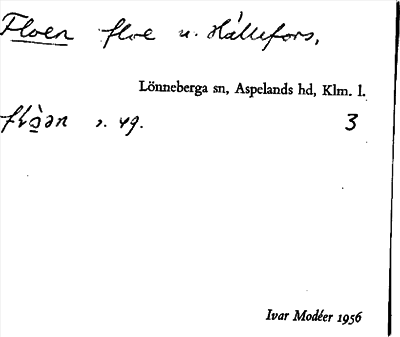 Floen floe u. Hällefors,
Lönneberga sn, Aspelands hd, Klm. l.
flȯ̱ən s. 49. 3
Ivar Modéer 1956